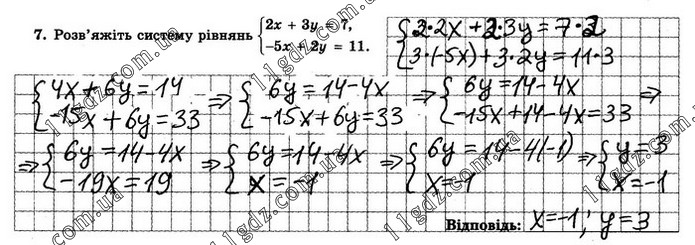 7. Розв'яжіть систему рівнянь { 2x + 3y = 7, -5x + 2y = 11.
{ 2·2x + 2·3y = 7·2 3·(-5x) + 3·2y = 11·3
{ 4x + 6y = 14 -15x + 6y = 33 => { 6y = 14 - 4x -15x + 6y = 33 => { 6y = 14 - 4x -15x + 14 - 4x = 33 =>
=> { 6y = 14 - 4x -19x = 19 => { 6y = 14 - 4x x = -1 => { 6y = 14 - 4(-1) x = -1 => { y = 3 x = -1
Відповідь: x = -1; y = 3
11gdz.com.ua